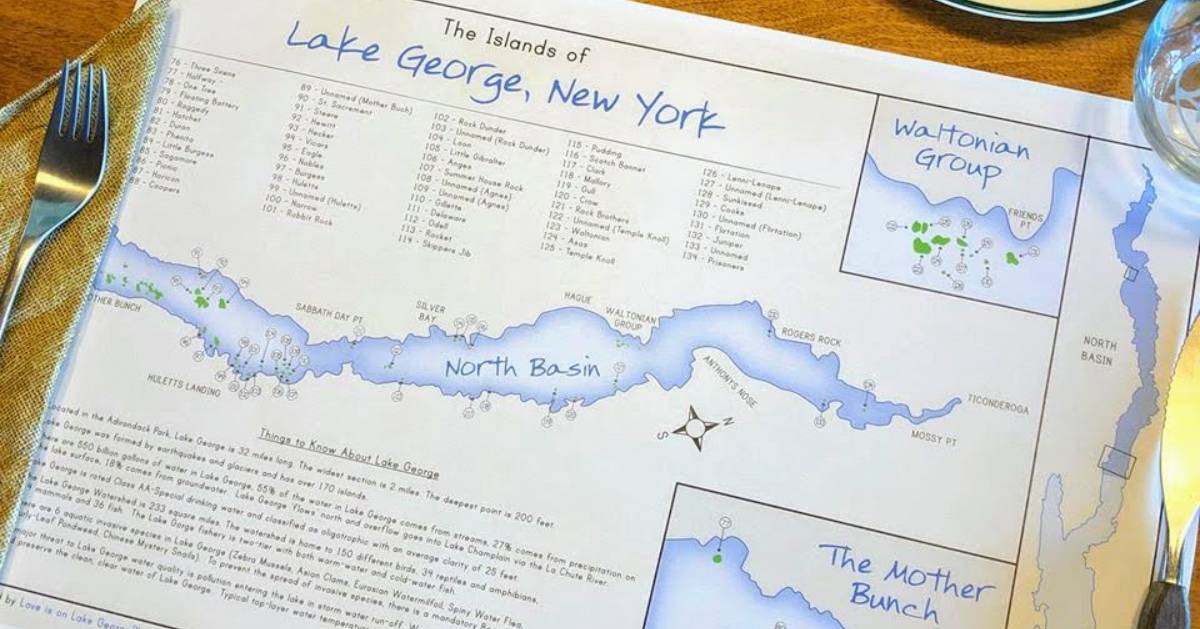 The Islands of
Lake George, New York
76 - Three Sirens
77 - Halfway
78 - One Tree
79 - Floating Battery
80 - Raggedy
81 - Hatcher
82 - Duran
83 - Phenita
84 - Little Burgess
85 - Sagamore
86 - Picnic
87 - Horicon
88 - Coopers
89 - Unnamed (Mother Buch)
90 - St. Sacrement
91 - Steere
92 - Hewitt
93 - Hecker
94 - Vicars
95 - Eagle
96 - Nobles
97 - Burgess
98 - Huletts
99 - Unnamed (Huletts)
100 - Narrow
101 - Rabbit Rock
102 - Rock Dunder
103 - Unnamed (Rock Dunder)
104 - Loon
105 - Little Gibralter
106 - Anges
107 - Summer House Rock
108 - Unnamed (Agnes)
109 - Unnamed (Agnes)
110 - Gillette
111 - Delaware
112 - Odell
113 - Rocket
114 - Skippers Jib
115 - Pudding
116 - Scotch Bonnet
117 - Clark
118 - Mallory
119 - Gull
120 - Crow
121 - Rock Brothers
122 - Unnamed (Temple Knoll)
123 - Waltonian
124 - Asas
125 - Temple Knoll
126 - Lenni-Lenape
127 - Unnamed (Lenni-Lenape)
128 - Sunkissed
129 - Cooke
130 - Unnamed (Flirtation)
131 - Flirtation
132 - Juniper
133 - Unnamed
134 - Prisoners
Waltonian
Group
FRIENDS
PT
NORTH
BASIN
OTHER BUNCH
HULETTS LANDING
SABBATH DAY PT
SILVER
BAY
HAGUE
WALTONIAN
GROUP
North Basin
ROGERS ROCK
ANTHONYS NOSE
TICONDEROGA
MOSSY PT
N
S
Things to Know About Lake George
ocated in the Adirondack Park, Lake George is 32 miles long. The widest section is 2 miles. The deepest point is 200 feet.
ake George was formed by earthquakes and glaciers and has over 170 islands.
here are 550 billion gallons of water in Lake George, 55% of the water in Lake George comes from streams, 27% comes from precipitation on
he lake surface, 18% comes from groundwater. Lake George 'flows' north and overflow goes into Lake Champlain via the La Chute River.
ke George is rated Class AA-Special drinking water and classified as oligotrophic with an average clarity of 25 feet.
e Lake George Watershed is 233 square miles. The watershed is home to 150 different birds, 34 reptiles and amphibians,
mammals and 36 fish. The Lake Gorge fishery is two-tier with both warm-water and cold-water fish.
ere are 6 aquatic invasive species in Lake George (Zebra Mussels, Asian Clams, Eurasian Watermilfoil, Spiny Water Flea,
rly-Leaf Pondweed, Chinese Mystery Snails). To prevent the spread of invasive species, there is a mandatory
major threat to Lake George water quality is pollution entering the lake in storm water run-off.
preserve the clean, clear water of Lake George. Typical top-layer water
by Love is on Lake George
77
The Mother
Bunch